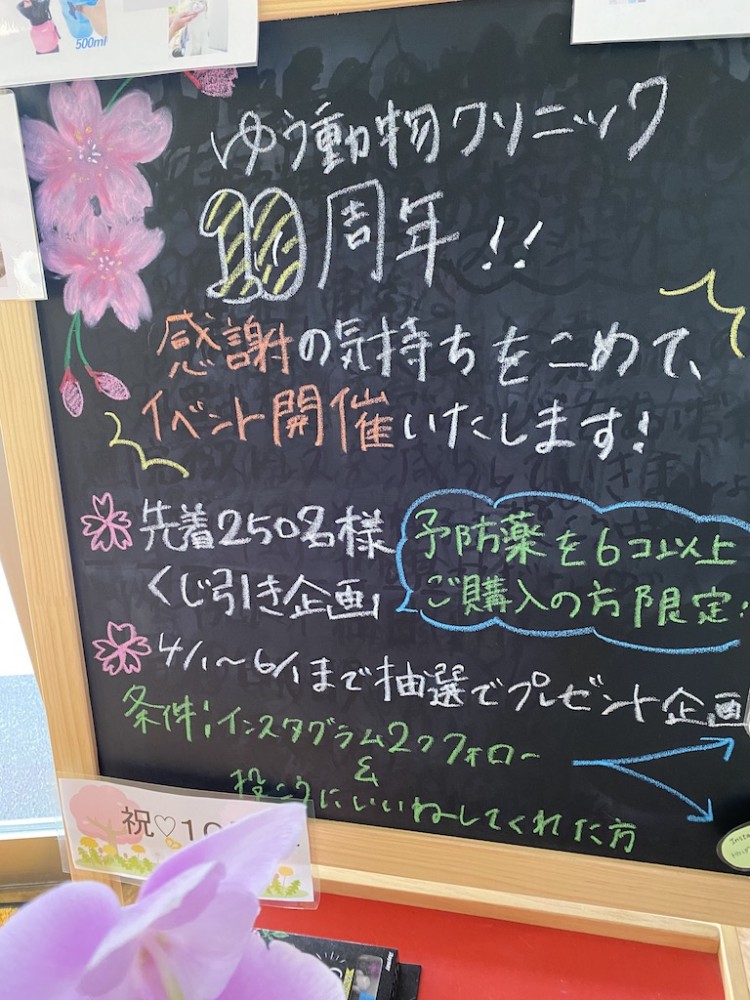 500ml
ゆう動物クリニック
10周年!!
感謝の気持ちをこめて、
イベント開催いたします!
先着250名様
くじ引き企画
予防薬を6コ以上
ご購入の方限定!
4/1〜6/1まで抽選でプレゼント企画
条件:インスタグラム2つフォロー
&
投こうにいいねしてくれた方
祝♡10